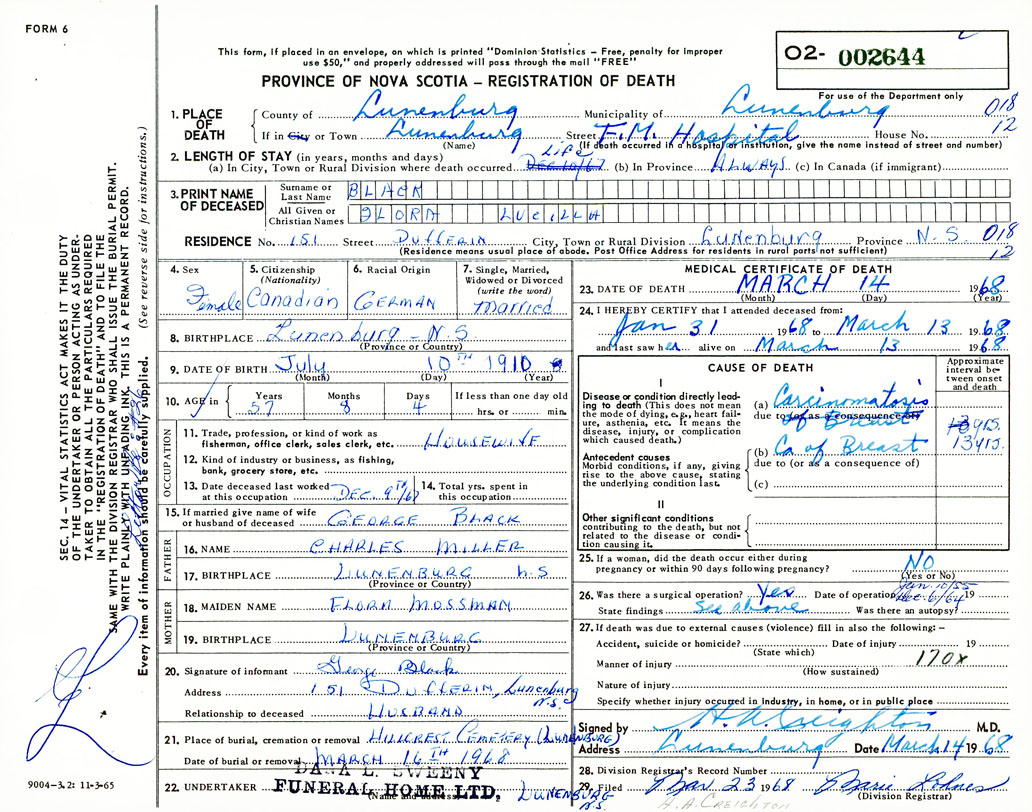 FORM 6
This form, if placed in an envelope, on which is printed "Dominion Statistics – Free, penalty for improper
use $50," and properly addressed will pass through the mail "FREE"
O2- 002644
PROVINCE OF NOVA SCOTIA – REGISTRATION OF DEATH
For use of the Department only
1. PLACE OF DEATH County of Lunenburg Municipality of Lunenburg 018
If in City or Town Lunenburg Street F.M. Hospital House No. 12
(Name) (If death occurred in a hospital or institution, give the name instead of street and number)
2. LENGTH OF STAY (in years, months and days) Life
(a) In City, Town or Rural Division where death occurred Dec 10/67 (b) In Province ALWAYS (c) In Canada (if immigrant)
3. PRINT NAME OF DECEASED Surname or Last Name BLACK
All Given or Christian Names FLORA LUCILLA
RESIDENCE No. 151 Street DUFFERIN City, Town or Rural Division Lunenburg Province N.S 018
(Residence means usual place of abode. Post Office Address for residents in rural parts not sufficient) 12
4. Sex Female
5. Citizenship (Nationality) Canadian
6. Racial Origin GERMAN
7. Single, Married, Widowed or Divorced (write the word) Married
8. BIRTHPLACE Lunenburg - N.S
(Province or Country)
9. DATE OF BIRTH July 10TH 1910
(Month) (Day) (Year)
10. AGE in Years 57 Months 8 Days 4 If less than one day old hrs. or min.
OCCUPATION
11. Trade, profession, or kind of work as fisherman, office clerk, sales clerk, etc. HOUSEWIFE
12. Kind of industry or business, as fishing, bank, grocery store, etc.
13. Date deceased last worked at this occupation DEC. 9TH/67 14. Total yrs. spent in this occupation
15. If married give name of wife or husband of deceased GEORGE BLACK
FATHER
16. NAME CHARLES MILLER
17. BIRTHPLACE LUNENBURG N.S
(Province or Country)
MOTHER
18. MAIDEN NAME FLORA MOSSMAN
19. BIRTHPLACE LUNENBURG
(Province or Country)
20. Signature of informant George Black
Address 151 DUFFERIN, Lunenburg N.S.
Relationship to deceased HUSBAND
21. Place of burial, cremation or removal HILLCREST CEMETERY (LUNENBURG)
Date of burial or removal MARCH 16TH 1968
DANA L. SWEENY
22. UNDERTAKER FUNERAL HOME LTD. LUNENBURG N.S.
(Name and address)
MEDICAL CERTIFICATE OF DEATH
23. DATE OF DEATH MARCH 14 1968
(Month) (Day) (Year)
24. I HEREBY CERTIFY that I attended deceased from:
Jan 31 1968 to March 13 1968
and last saw her alive on March 13 1968
CAUSE OF DEATH
Approximate interval between onset and death
I
Disease or condition directly leading to death (This does not mean the mode of dying, e.g., heart failure, asthenia, etc. It means the disease, injury, or complication which caused death.)
(a) Carcinomatosis
due to (or as a consequence of) of Breast 13 yrs.
Antecedent causes
Morbid conditions, if any, giving rise to the above cause, stating the underlying condition last.
(b) Ca of Breast 13 yrs.
due to (or as a consequence of)
(c)
II
Other significant conditions contributing to the death, but not related to the disease or condition causing it.
25. If a woman, did the death occur either during pregnancy or within 90 days following pregnancy? NO
(Yes or No)
26. Was there a surgical operation? Yes Date of operation Jan. 10/55 Dec. 6/64 19
State findings see above Was there an autopsy?
27. If death was due to external causes (violence) fill in also the following: –
Accident, suicide or homicide? Date of injury 19
(State which)
Manner of injury 170x
(How sustained)
Nature of injury
Specify whether injury occurred in industry, in home, or in public place
Signed by H.A. Creighton M.D.
Address Lunenburg Date March 14 1968
28. Division Registrar's Record Number
29. Filed Mar 23 1968
(Division Registrar)
H.A. CREIGHTON
SEC. 14 – VITAL STATISTICS ACT MAKES IT THE DUTY
OF THE UNDERTAKER OR PERSON ACTING AS UNDER-
TAKER TO OBTAIN ALL THE PARTICULARS REQUIRED
IN THE "REGISTRATION OF DEATH" AND TO FILE THE
SAME WITH THE DIVISION REGISTRAR WHO SHALL ISSUE THE BURIAL PERMIT.
WRITE PLAINLY WITH UNFADING INK. THIS IS A PERMANENT RECORD.
Every item of information should be carefully supplied. (See reverse side for instructions.)
9004-3.2: 11-3-65